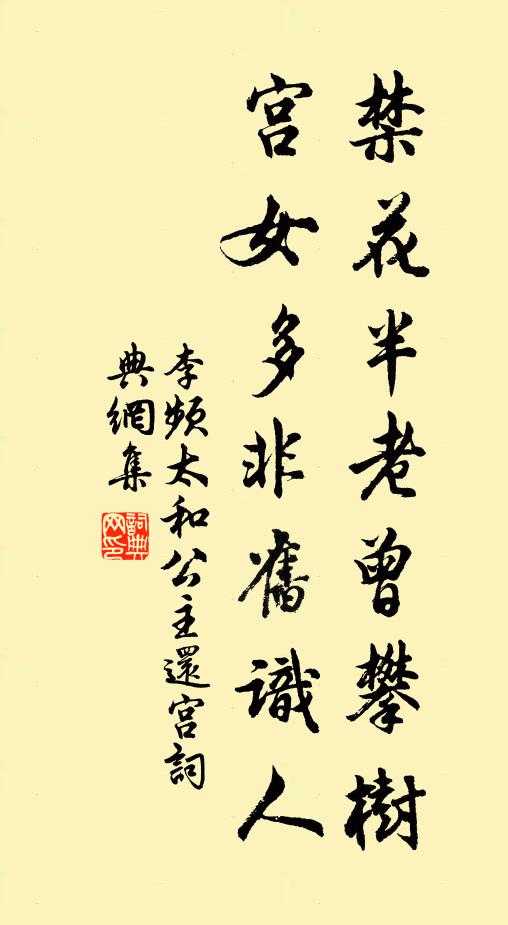 禁花半老曾攀樹
宮女多非舊識人
李頻太和公主還宮詞
典網集
詞典
网印